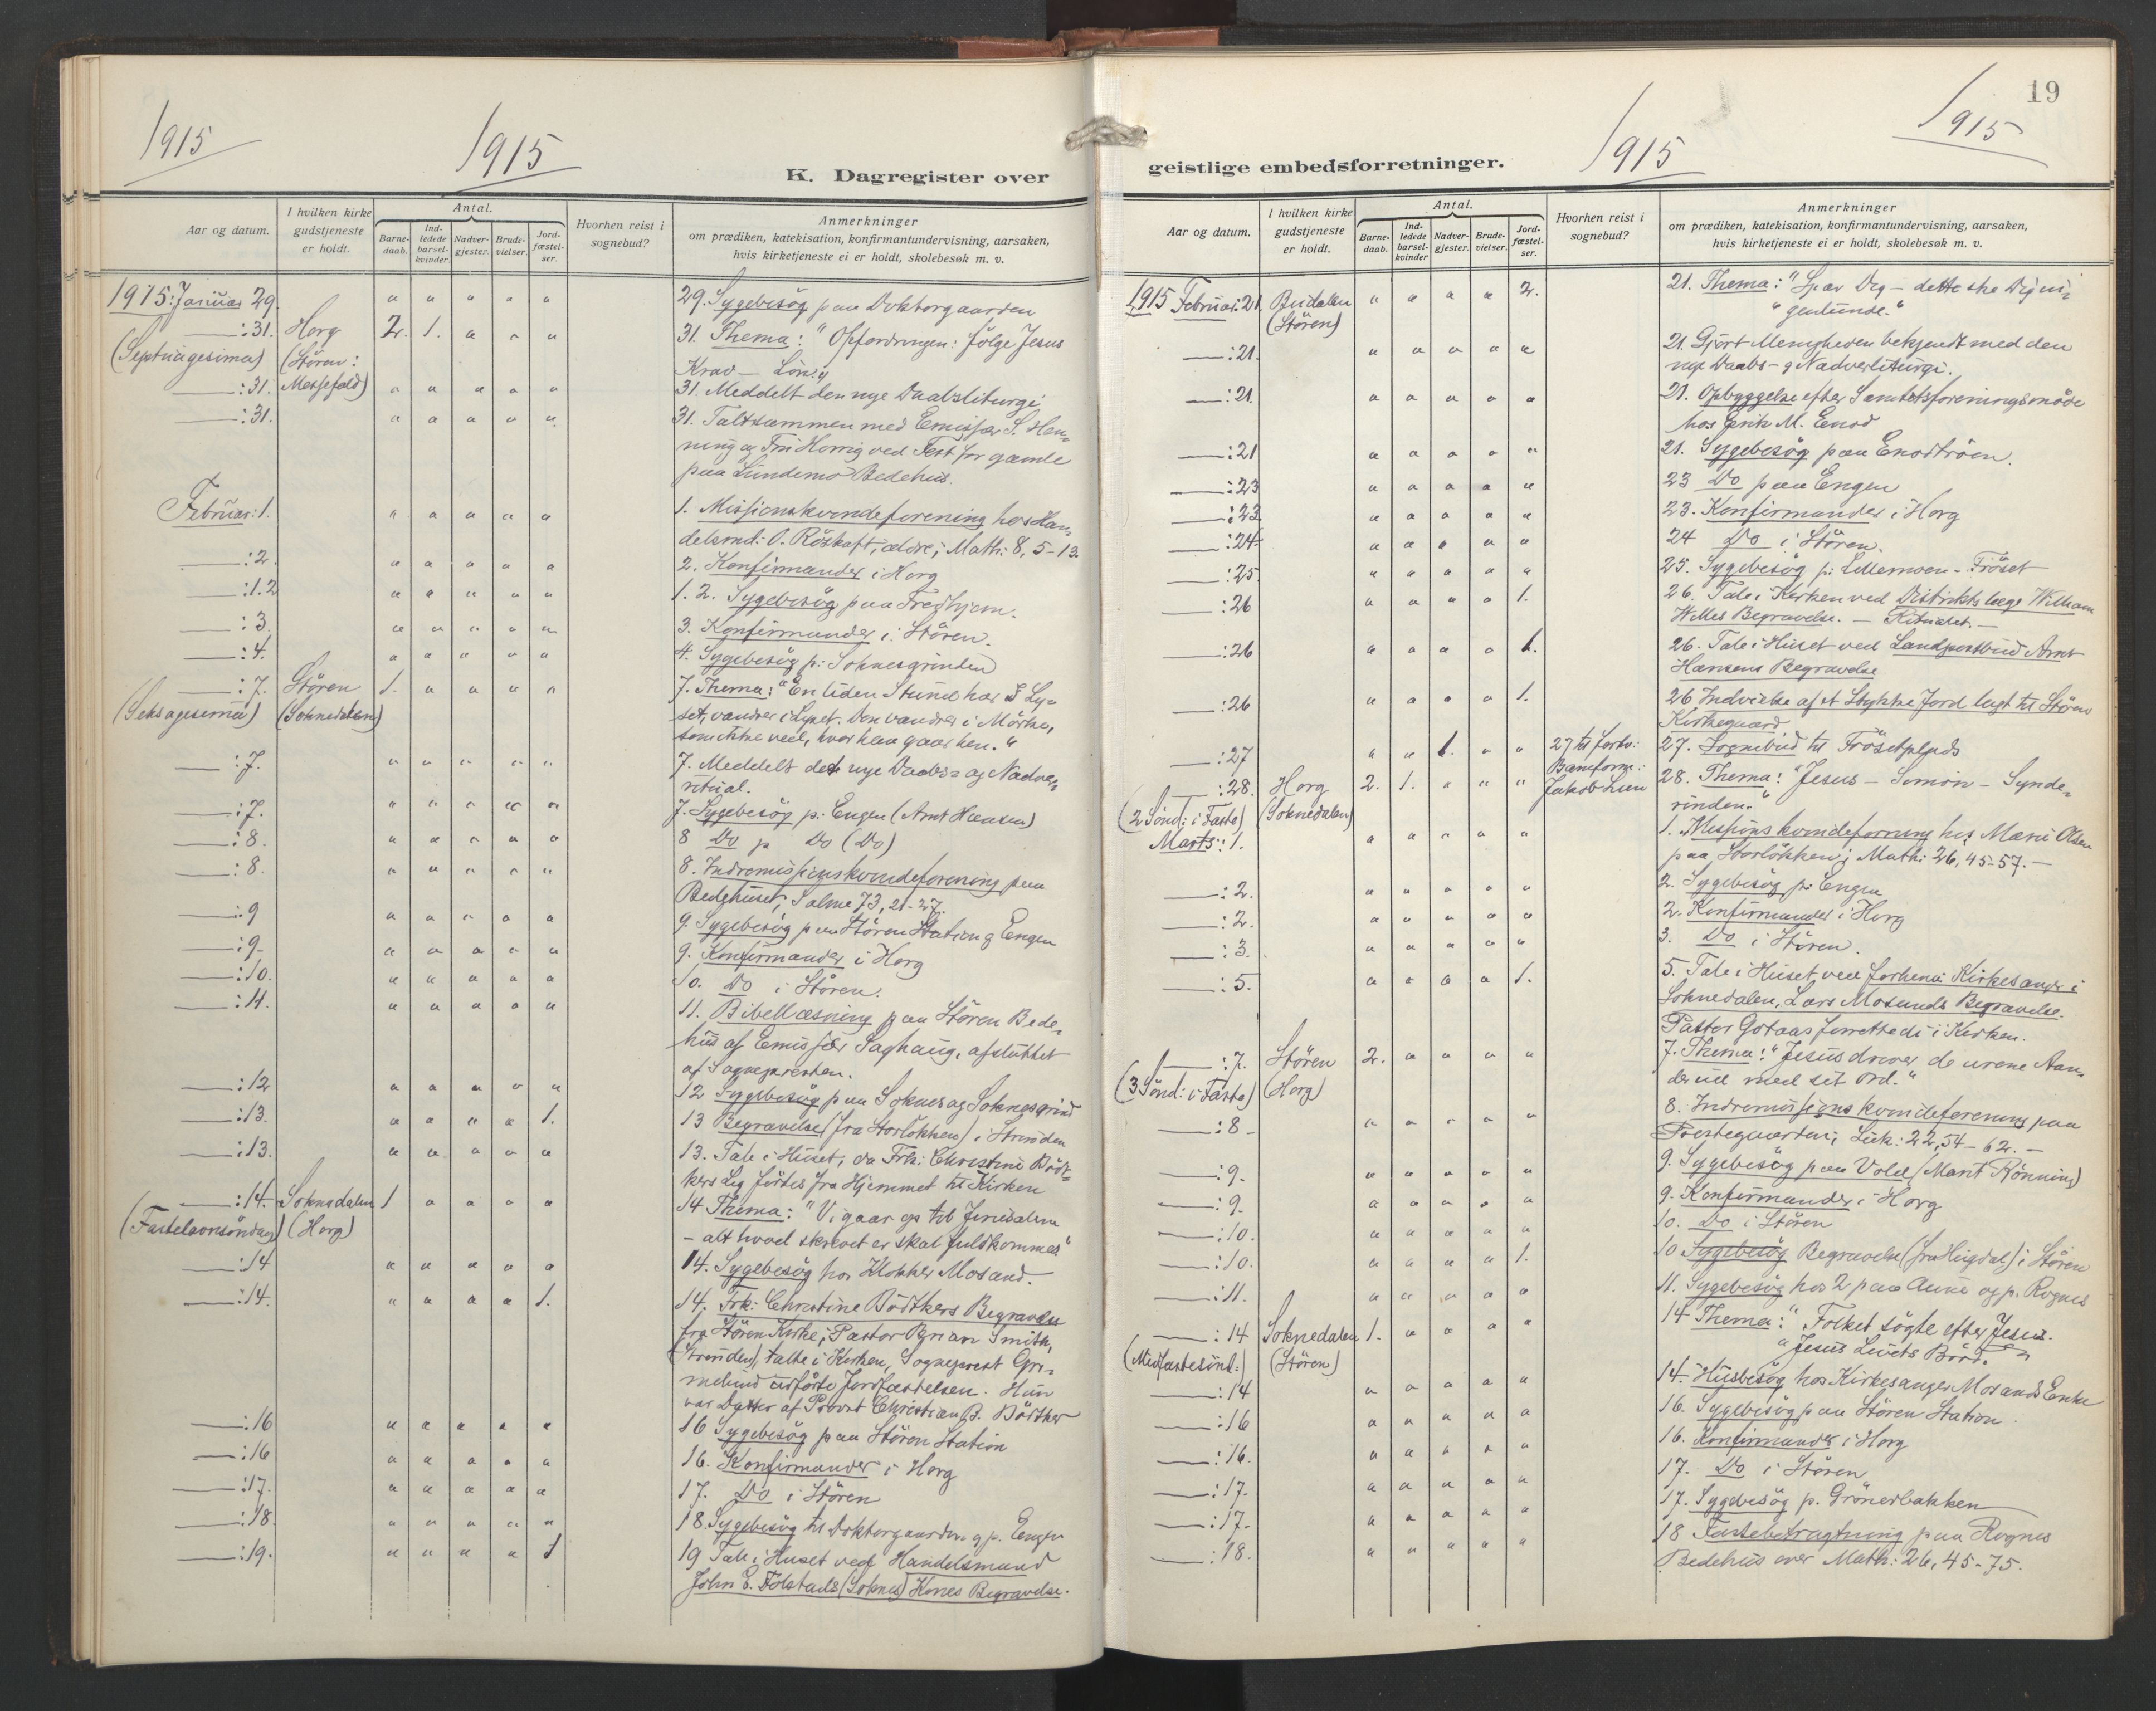 1915
1915
K. Dagregister over
Aar og datum.
I hvilken kirke gudstjeneste er holdt.
Antal.
Barne-daab.
Ind-ledede barsel-kvinder
Nadver-gjester.
Brude-vielser.
Jord-fæstel-ser.
Hvorhen reist i sognebud?
Anmerkninger
om prædiken, katekisation, konfirmantundervisning, aarsaken,
hvis kirketjeneste ei er holdt, skolebesøk m. v.
1915: Januar 29. " " " " " 29. Sygebesøg paa Doktorgaarden
—:31. Horg 2. 1. " " " 31. Thema: "Opfordringen: følge Jesus
(Septuagesima) (Støren: Krav — Løn."
—:31. Messefald) " " " " " 31. Meddelt den nye Daabsliturgi
—:31. " " " " " 31. Talt sammen med Emissær S. Hen-
ning og Fru Horrig ved Fest for gamle
paa Lundemo Bedehus.
Februar: 1. " " " " " 1. Missionskvindeforening hos Han-
delsmd: O. Röskaft, ældre; Math: 8, 5-13.
—:2. " " " " " 2. Konfirmander i Horg
—:1.2 " " " " " 1. 2. Sygebesøg paa Fredhjem.
—:3. " " " " " 3. Konfirmander i Støren.
—:4. " " " " " 4. Sygebesøg p: Soknesgrinden
—:7. Støren 1. " " " " 7. Thema: "En liden Stund har I Ly-
(Seksagesima) (Soknedalen) set, vandrer i Lyset. Den vandrer i Mörke,
som ikke veed, hvor han gaar hen."
—:7. " " " " " 7. Meddelt det nye Daabs- og Nadver-
ritual.
—:7. " " " " " 7. Sygebesøg p: Engen (Arnt Hansen)
—:8. " " " " " 8 Do p Do (Do)
—:8. " " " " " 8. Indremissionskvindeforening paa
Bedehuset, Salme 73, 21-27.
—:9 " " " " " 9. Sygebesøg paa Støren Station og Engen
—:9. " " " " " 9. Konfirmander i Horg
—:10. " " " " " 10. Do i Støren.
—:11. " " " " " 11. Bibellæsning paa Støren Bede-
hus af Emissær Saghaug, afsluttet
af Sognepresten.
—:12 " " " " " 12 Sygebesøg paa Soknes og Soknesgrind
—:13. " " " " 1. 13 Begravelse (fra Storløkken) i Strinden
—:13. " " " " " 13. Tale i Huset, da Frk: Christine Bödt-
kers Lig förtes fra Hjemmet til Kirken
—:14. Soknedalen 1 " " " " 14 Thema: "Vi gaar op til Jerusalem
(Fastelavnsöndag) (Horg) – alt hvad skrevet er skal fuldkommes"
—:14 " " " " " 14. Sygebesøg hos Klokker Mosand.
—:14. " " " " 1. 14. Frk: Christine Bödtkers Begravelse
fra Støren Kirke; Pastor Brian Smith,
(Strinden), talte i Kirken, Sogneprest Gri-
melund udförte Jordfæstelsen. Hun
var Datter af Provst Christian B. Bödtker
—:16 " " " " " 16 Sygebesøg paa Støren Station
—:16 " " " " " 16. Konfirmander i Horg
—:17. " " " " " 17. Do i Støren
—:18. " " " " " 18. Sygebesøg til Doktorgaarden og p. Engen
—:19. " " " " 1 19 Tale i Huset ved Handelsmand
John E. Folstads (Soknes) Kones Begravelse.
19
1915
1915
geistlige embedsforretninger.
Aar og datum.
I hvilken kirke gudstjeneste er holdt.
Antal.
Barne-daab.
Ind-ledede barsel-kvinder
Nadver-gjester.
Brude-vielser.
Jord-fæstel-ser.
Hvorhen reist i sognebud?
Anmerkninger
om prædiken, katekisation, konfirmantundervisning, aarsaken,
hvis kirketjeneste ei er holdt, skolebesøk m. v.
1915 Februar: 21. Budalen " " " " 2. 21. Thema: "Spar Dig – dette ske Dig in-
(Støren) "genlunde."
—:21. " " " " " 21. Gjort Menigheden bekjendt med den
nye Daabs- og Nadverliturgi.
—:21. " " " " " 21. Opbyggelse efter Samtalsforeningsmöde
hos Erik M. Enod
—:21 " " " " " 21. Sygebesøg paa Enodtröen.
—:23 " " " " " 23 Do paa Engen
—:23 " " " " " 23. Konfirmander i Horg
—:24 " " " " " 24 Do i Støren.
—:25 " " " " " 25. Sygebesøg p: Lillemoen – Fröset
—:26 " " " " 1. 26. Tale i Kirken ved Distriktslæge William
Willes Begravelse. – Ritualet. –
—:26 " " " " 1. 26. Tale i Huset ved Landpostbud Arnt
Hansens Begravelse
—:26 " " " " 1. 26 Indvielse af et Stykke Jord lagt til Støren
Kirkegaard
—:27 " " 1. " " 27 til forhv: 27. Sognebud til Frösetplads
Baneform:
—:28. Horg 2. 1. " " " Jakob Lien 28. Thema: "Jesus – Simon – Synde-
(2 Sönd: i Faste) (Soknedalen) rinden."
Marts: 1. " " " " " 1. Missionskvindeforening hos Marie Olsen
paa Storlökken; Math: 26, 45-57. –
—:2. " " " " " 2. Sygebesøg p: Engen
—:2. " " " " " 2. Konfirmander i Horg
—:3. " " " " " 3. Do i Støren.
—:5. " " " " 1. 5. Tale i Huset ved forhenv: Kirkesanger i
Soknedalen, Lars Mosands Begravelse.
Pastor Gotaas forrettede i Kirken.
—:7. Støren 2. " " " " 7. Thema: "Jesus driver de urene Aan-
(3 Sönd: i Faste) (Horg) der ud med sit Ord."
—:8 – " " " " " 8. Indremissionskvindeforening paa
Prestegaarden; Luk: 22, 54-62. –
—:9. " " " " " 9. Sygebesøg paa Vold (Marit Rönning)
—:9. " " " " " 9. Konfirmander i Horg
—:10. " " " " " 10. Do i Støren
—:10. " " " " 1. 10 Sygebesøg Begravelse (fra Hugdal) i Støren
—:11. " " " " " 11. Sygebesøg hos 2 paa Aune og p. Rognes
—:14 Soknedalen 1. " " " " 14 Thema: "Folket søgte efter Jesus.
(Midfastesönd:) (Støren) "Jesus Livets Bröd."
—:14 " " " " " 14. Husbesøg hos Kirkesanger Mosands Enke
—:16 " " " " " 16. Sygebesøg paa Støren Station.
—:16. " " " " " 16. Konfirmander i Horg
—:17. " " " " " 17. Do i Støren
—:17. " " " " " 17. Sygebesøg p. Grönerbakken
—:18. " " " " " 18 Fastebetragtning paa Rognes
Bedehus over Math: 26, 45-75.